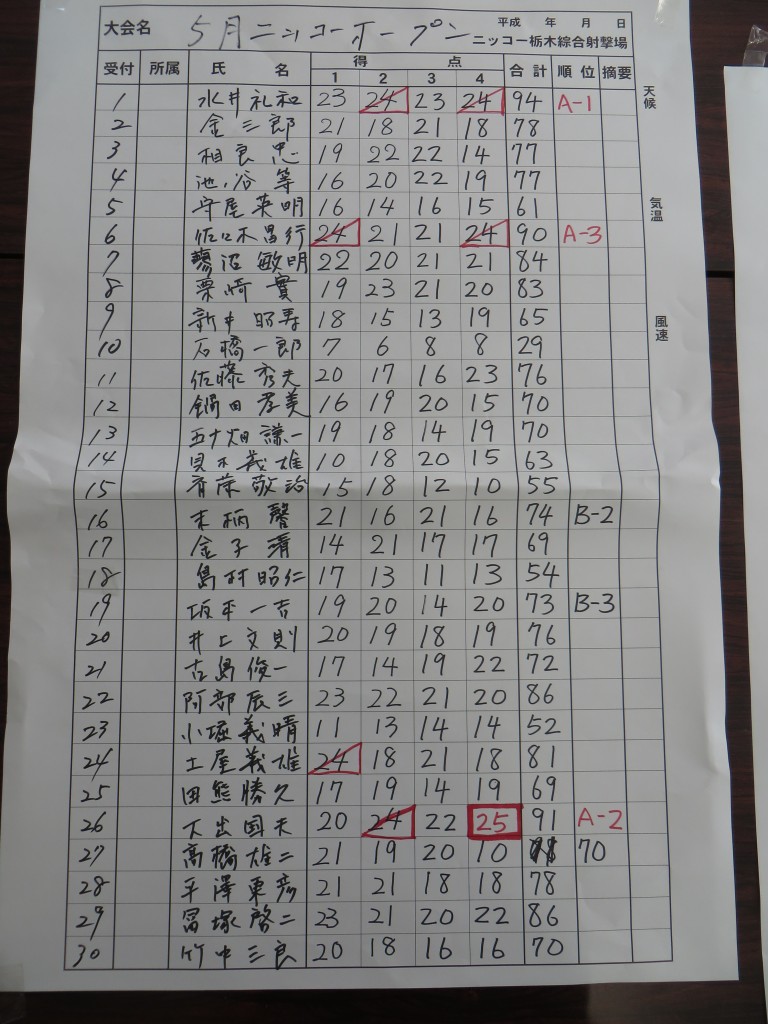 大会名 5月ニッコーオープン 平成 年 月 日
ニッコー栃木綜合射撃場
受付 所属 氏 名 得 点 合計 順位 摘要
1 2 3 4
天候
気温
風速
1 水井礼和 23 24 23 24 94 A-1
2 金三郎 21 18 21 18 78
3 相良忠 19 22 22 14 77
4 池ノ谷等 16 20 22 19 77
5 守屋英明 16 14 16 15 61
6 佐々木昌行 24 21 21 24 90 A-3
7 蓼沼敏明 22 20 21 21 84
8 栗崎實 19 23 21 20 83
9 新井昭寿 18 15 13 19 65
10 石橋一郎 7 6 8 8 29
11 佐藤秀夫 20 17 16 23 76
12 鍋田孝美 16 19 20 15 70
13 五十畑謙一 19 18 14 19 70
14 義雄 10 18 20 15 63
15 斉藤敬治 15 18 12 10 55
16 末柄馨 21 16 21 16 74 B-2
17 金子清 14 21 17 17 69
18 島村昭仁 17 13 11 13 54
19 坂本一吉 19 20 14 20 73 B-3
20 井上文則 20 19 18 19 76
21 古島俊一 17 14 19 22 72
22 阿部辰三 23 22 21 20 86
23 小堀義晴 11 13 14 14 52
24 土屋義雄 24 18 21 18 81
25 田熊勝久 17 19 14 19 69
26 大出国夫 20 24 22 25 91 A-2
27 高橋雄二 21 19 20 10 70
28 平澤東彦 21 21 18 18 78
29 冨塚啓二 23 21 20 22 86
30 竹中三良 20 18 16 16 70